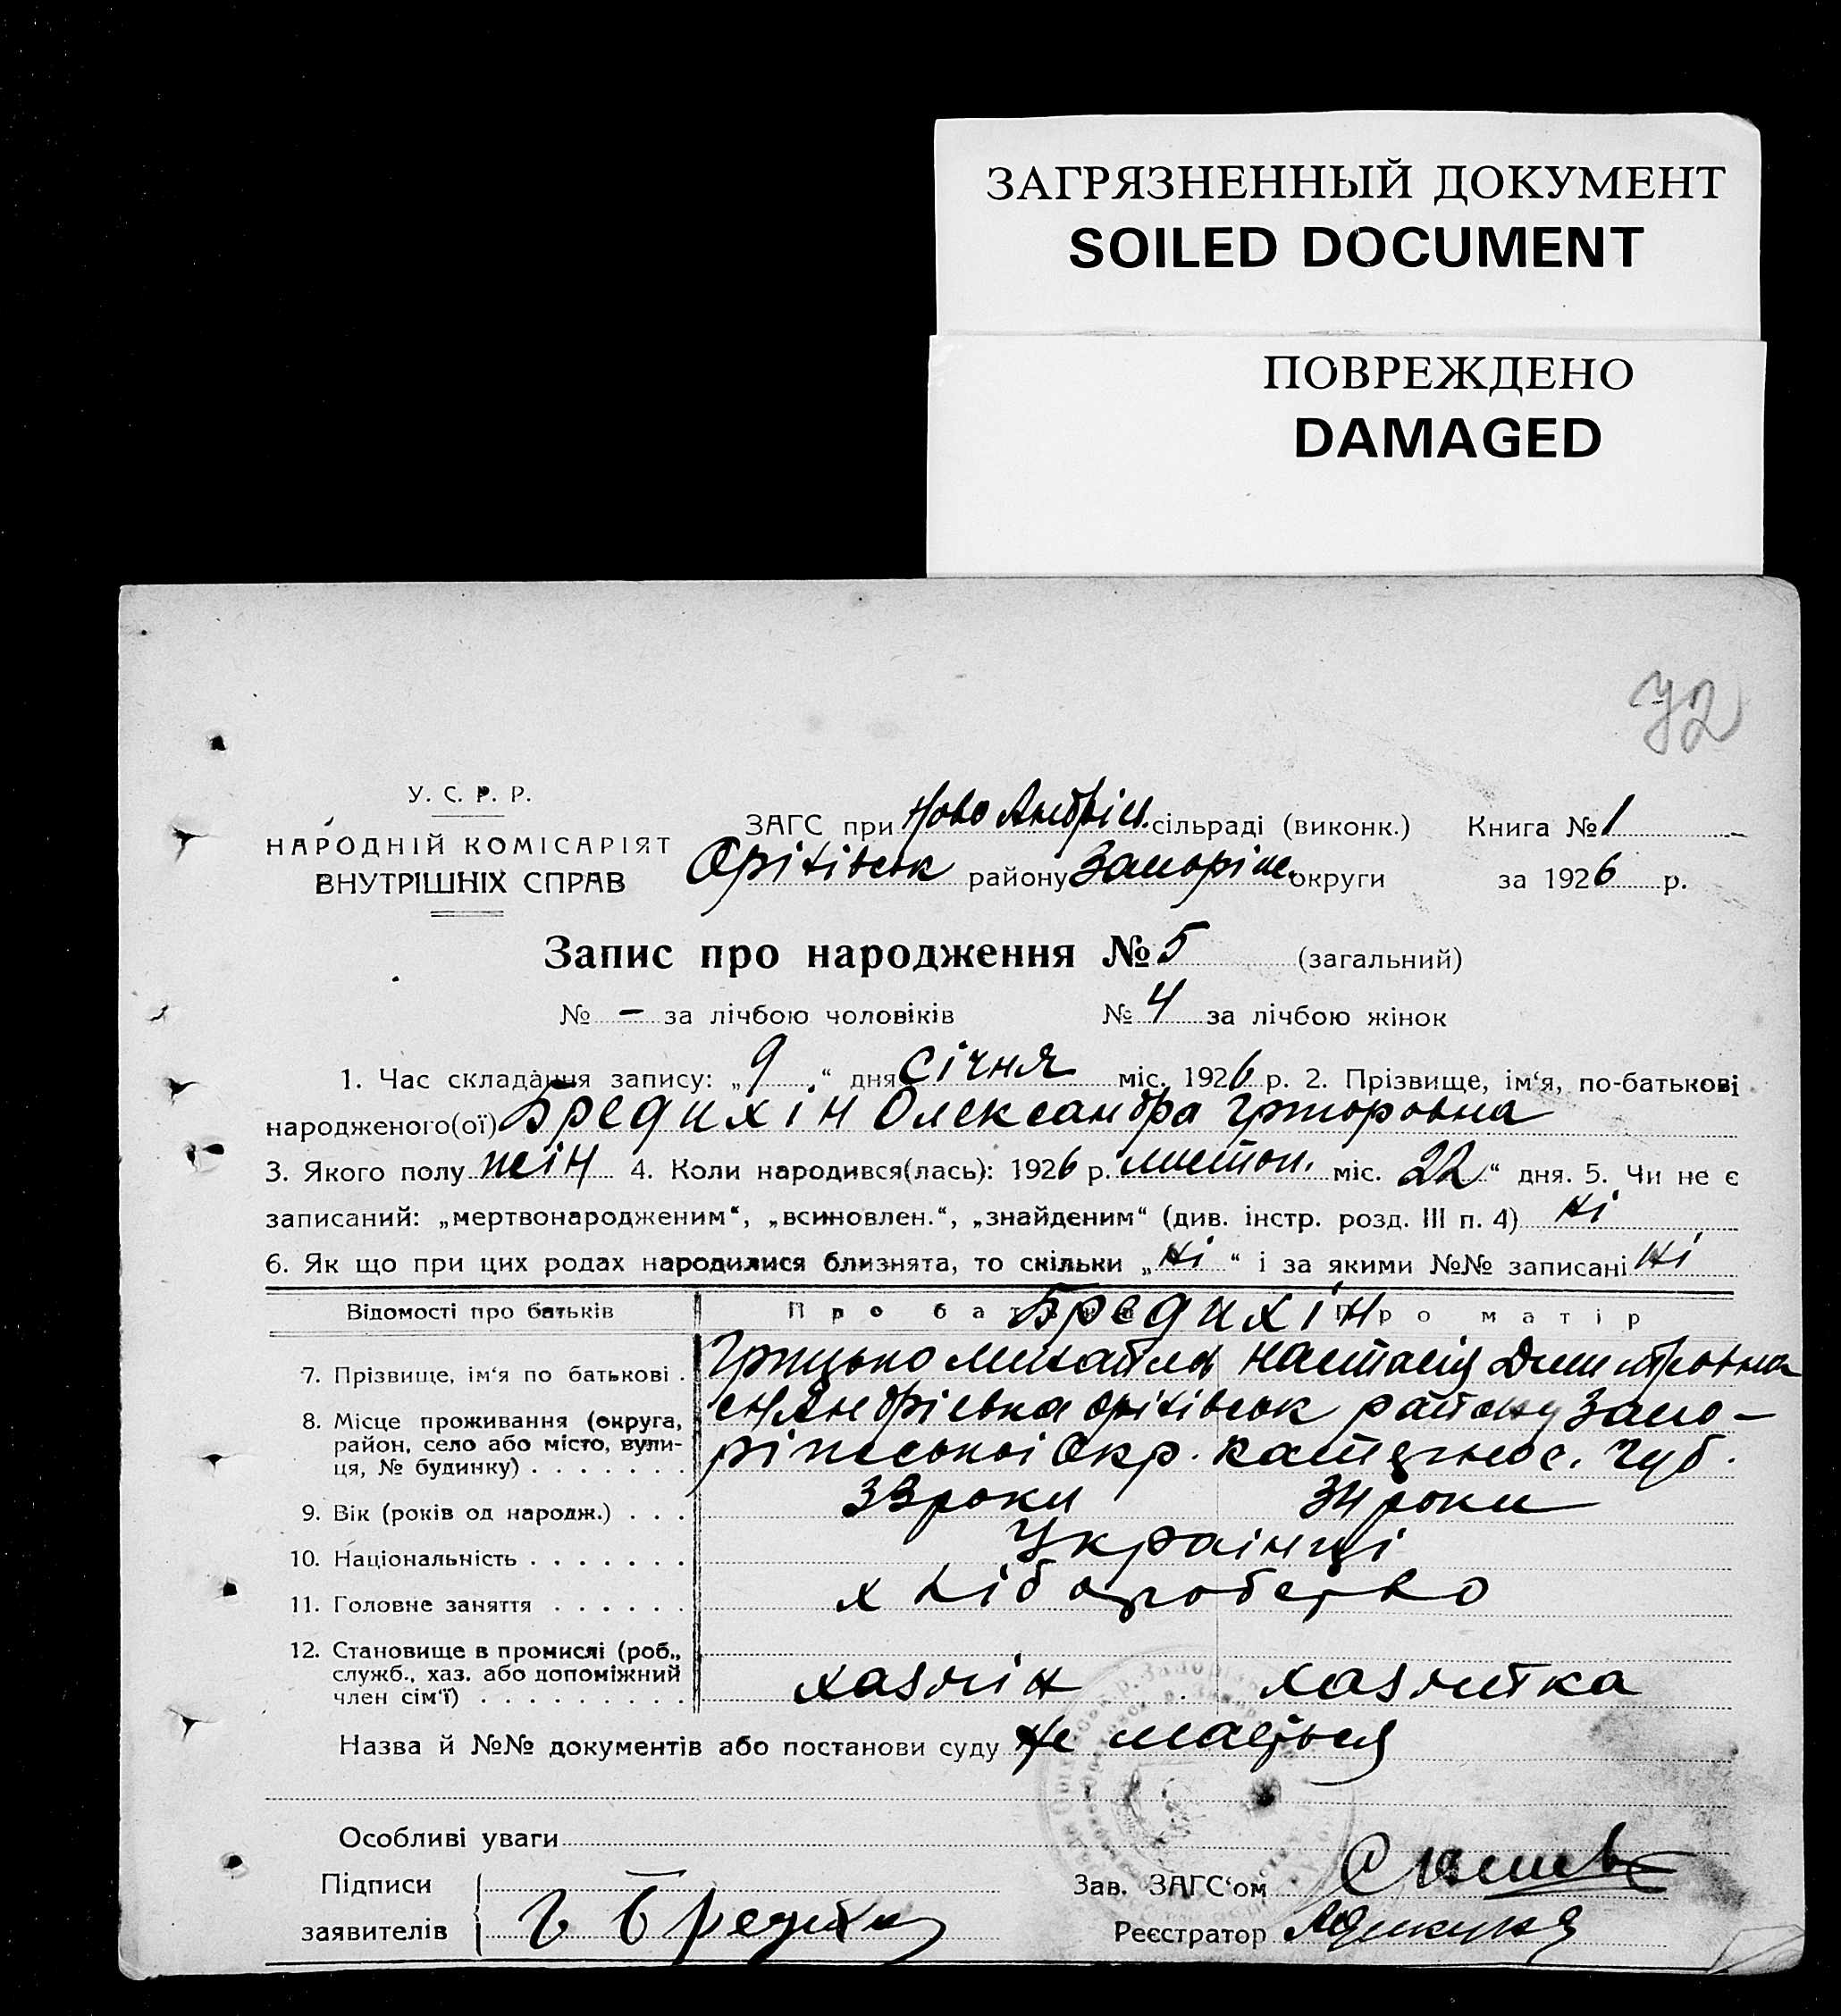 ЗАГРЯЗНЕННЫЙ ДОКУМЕНТ
SOILED DOCUMENT
ПОВРЕЖДЕНО
DAMAGED
72
У. С. Р. Р.
НАРОДНІЙ КОМІСАРІЯТ
ВНУТРІШНІХ СПРАВ
ЗАГС при Ново Андріїв. сільраді (виконк.) Книга № 1
Оріхівськ району Запоріж. округи за 1926 р.
Запис про народження № 5 (загальний)
№ – за лічбою чоловіків № 4 за лічбою жінок
1. Час складання запису: „9“ дня січня міс. 1926 р. 2. Прізвище, ім‘я, по-батькові
народженого(ої) Бредихін Олександра Григоровна
3. Якого полу жін 4. Коли народився(лась): 1926 р. листоп. міс. 22“ дня. 5. Чи не є
записаний: „мертвонародженим“, „всиновлен.“, „знайденим“ (див. інстр. розд. III п. 4) Ні
6. Як що при цих родах народилися близнята, то скільки „Ні“ і за якими №№ записані Ні
Відомості про батьків Про батька Бредихін Про матір
7. Прізвище, ім‘я по батькові . Грицько Михайлов Настасія Дмитровна
8. Місце проживання (округа, район, село або місто, вули-ця, № будинку) . . . . . . . с Н Андрієвка Оріхівськ району Запо-
ріжської Окр. Катерінос. Губ.
9. Вік (років од народж.) . . . 33 роки 34 роки
10. Національність . . . . . . . Українці
11. Головне заняття . . . . . . хліборобство
12. Становище в промислі (роб., служб., хаз. або допоміжний член сім‘ї) . . . . . . . . . хазяїн хазяйка
Назва й №№ документів або постанови суду Не маеться
Особливі уваги
Підписи
заявителів Г Бредихін
Зав. ЗАГС‘ом
Реєстратор